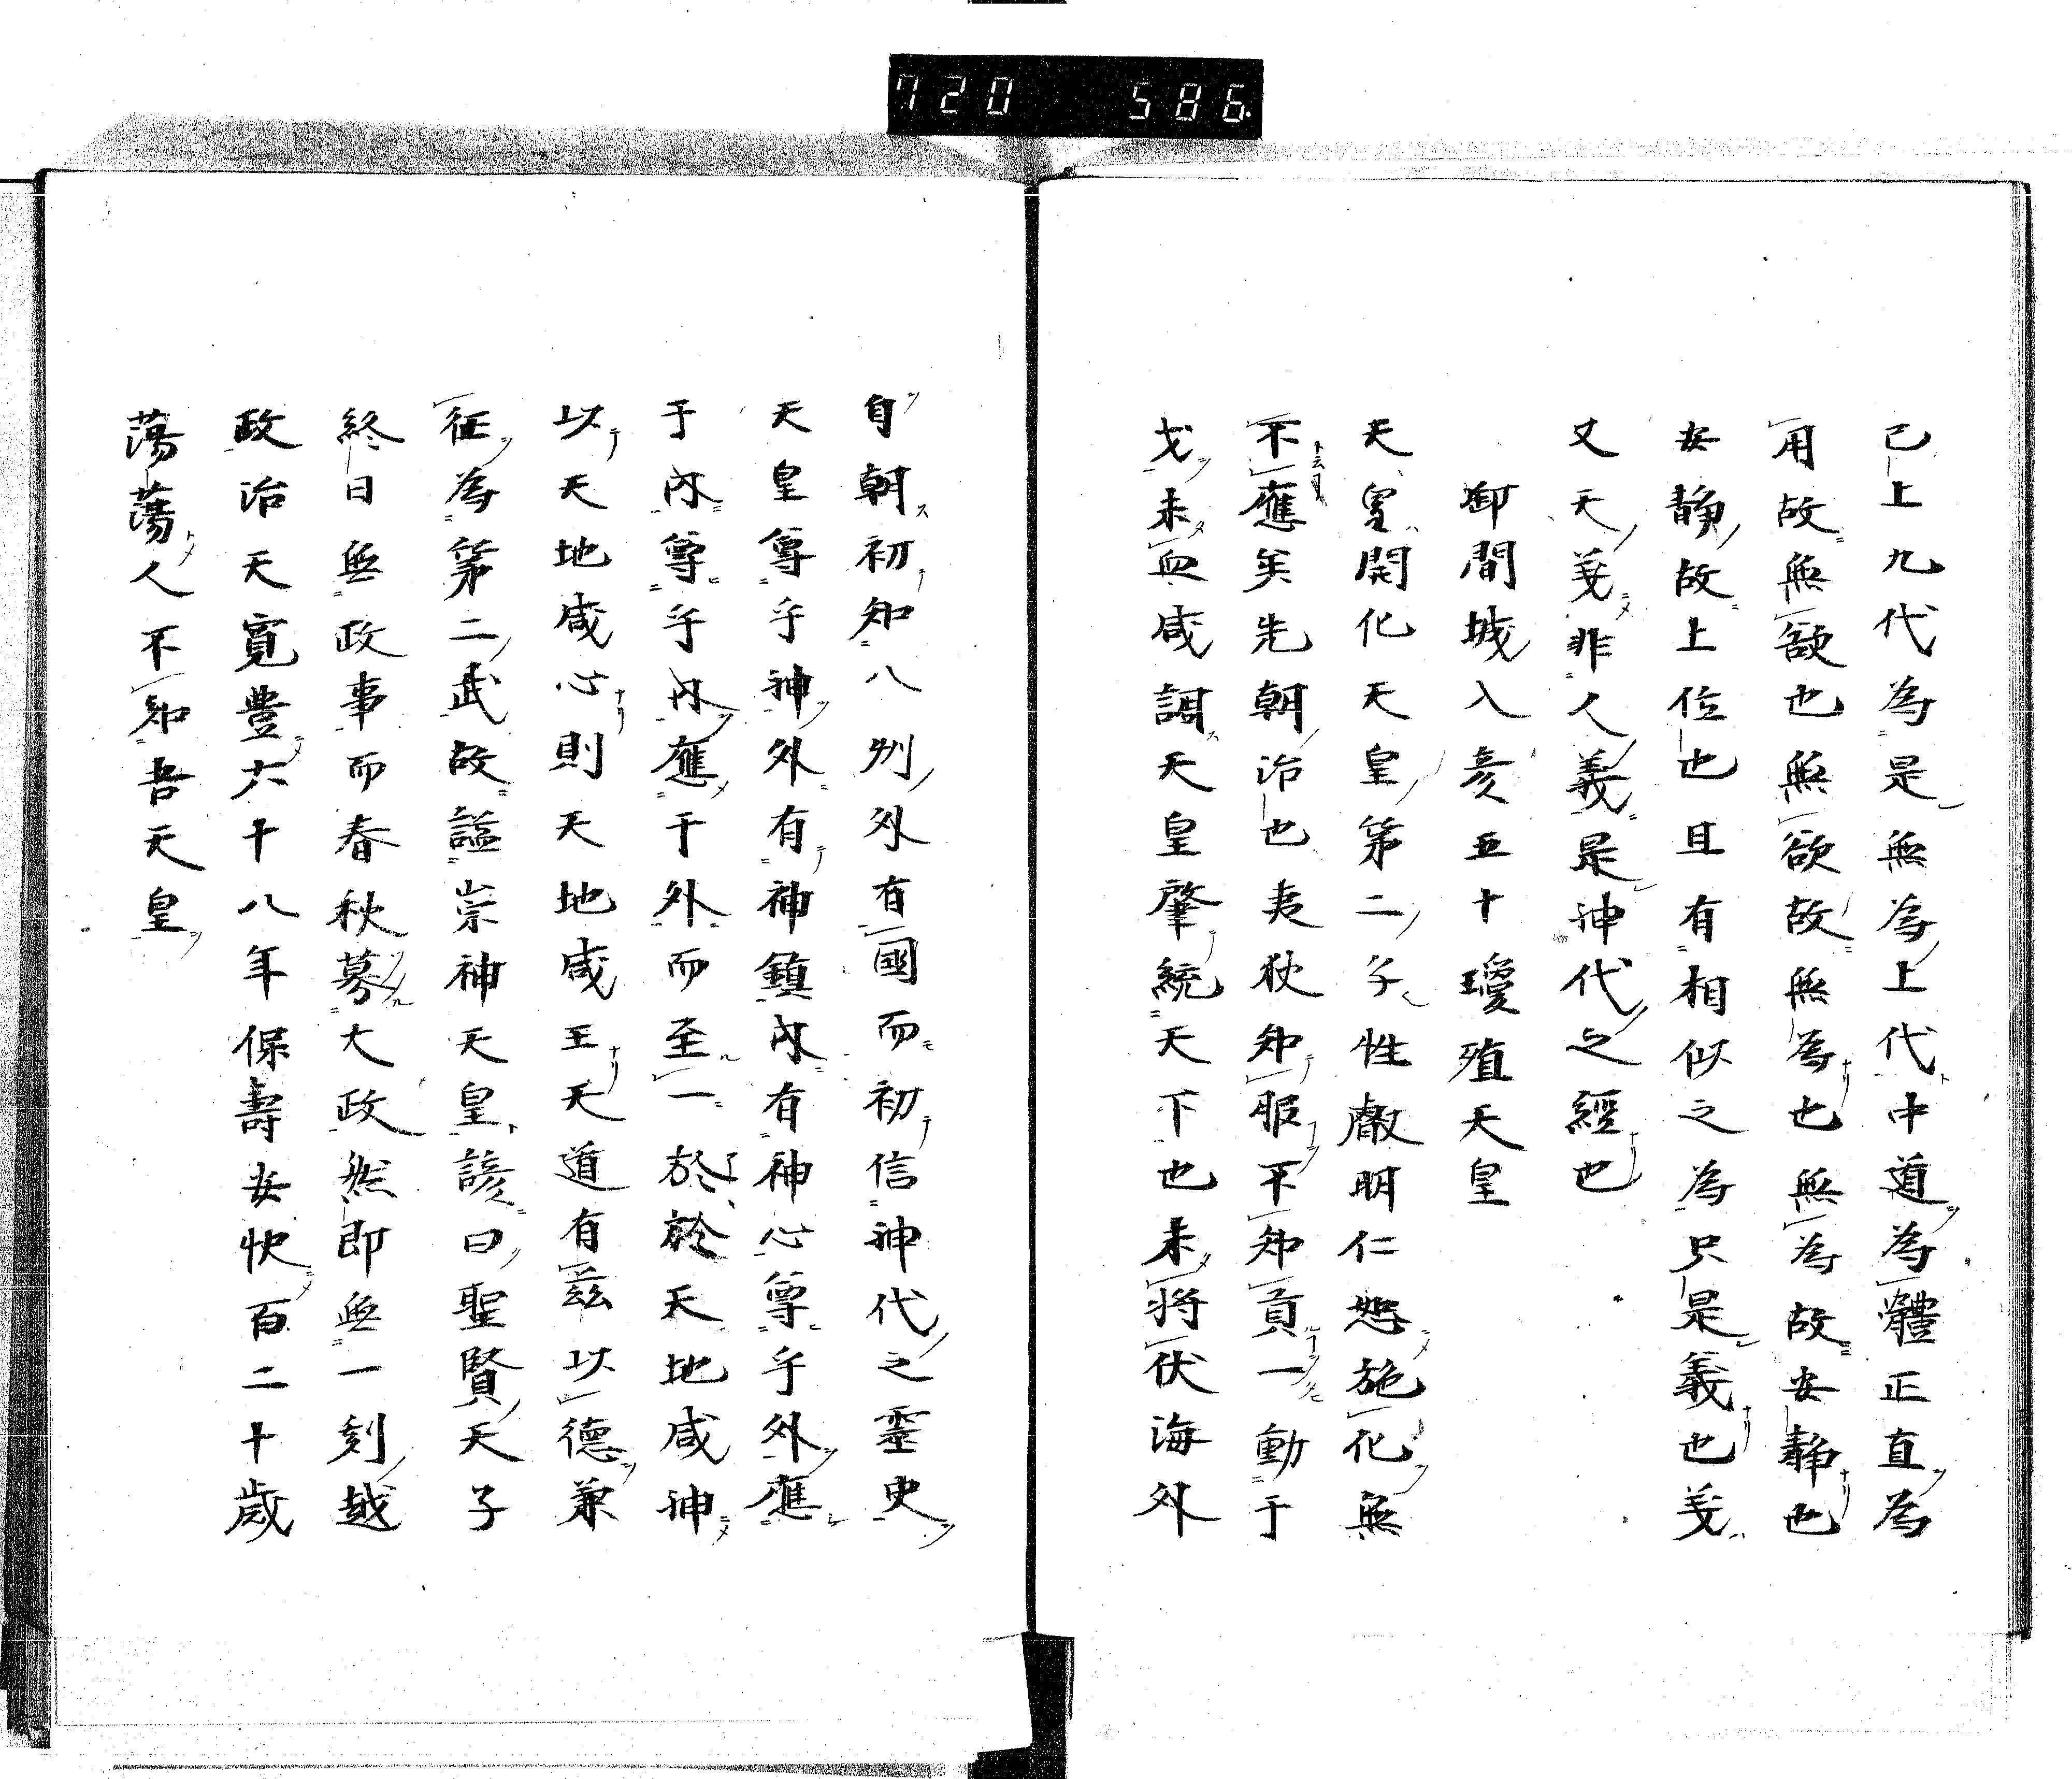 720 586
已上九代為是無為上代中道為體正直為
用故無欲也無欲故無為也無為故安靜也
安靜故上位也且有相似之為只是義也義
丈天義非人義是神代之經也
御間城入彥五十瓊殖天皇
天皇開化天皇第二子性叡明仁恕施化無
不應矣先朝治也夷狄知服不知貢一動于
戈未血咸詶天皇肇統天下也未將伏海外
自朝初知八州外有國而初信神代之靈史
天皇尊乎神外有神鎮內有神心尊乎外應
于內尊乎內應于外而至一於於天地咸神
以天地咸心則天地咸王天道有茲以德兼
征為第二武故諡崇神天皇諺曰聖賢天子
終日無政事而春秋募大政然即無一刻越
政治天寬豐六十八年保壽安快百二十歲
蕩蕩人不知吾天皇